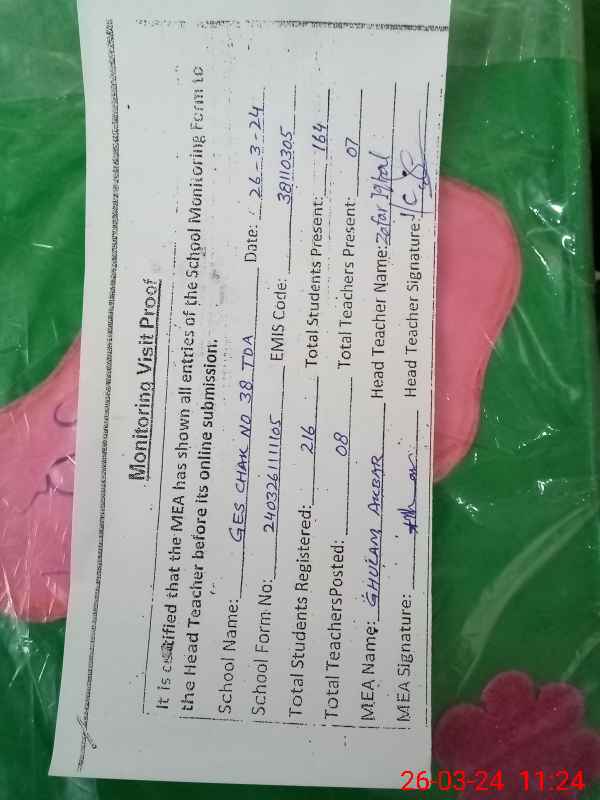 Monitoring Visit Proof
It is certified that the MEA has shown all entries of the School Monitoring Form to
the Head Teacher before its online submission.
School Name: GES CHAK NO 38 TDA Date: 26-3-24
School Form No: 240326111105 EMIS Code: 38110305
Total Students Registered: 216 Total Students Present: 164
Total TeachersPosted: 08 Total Teachers Present: 07
MEA Name: GHULAM AKBAR Head Teacher Name: Zafar Iqbal
MEA Signature: Head Teacher Signature:
26-03-24 11:24